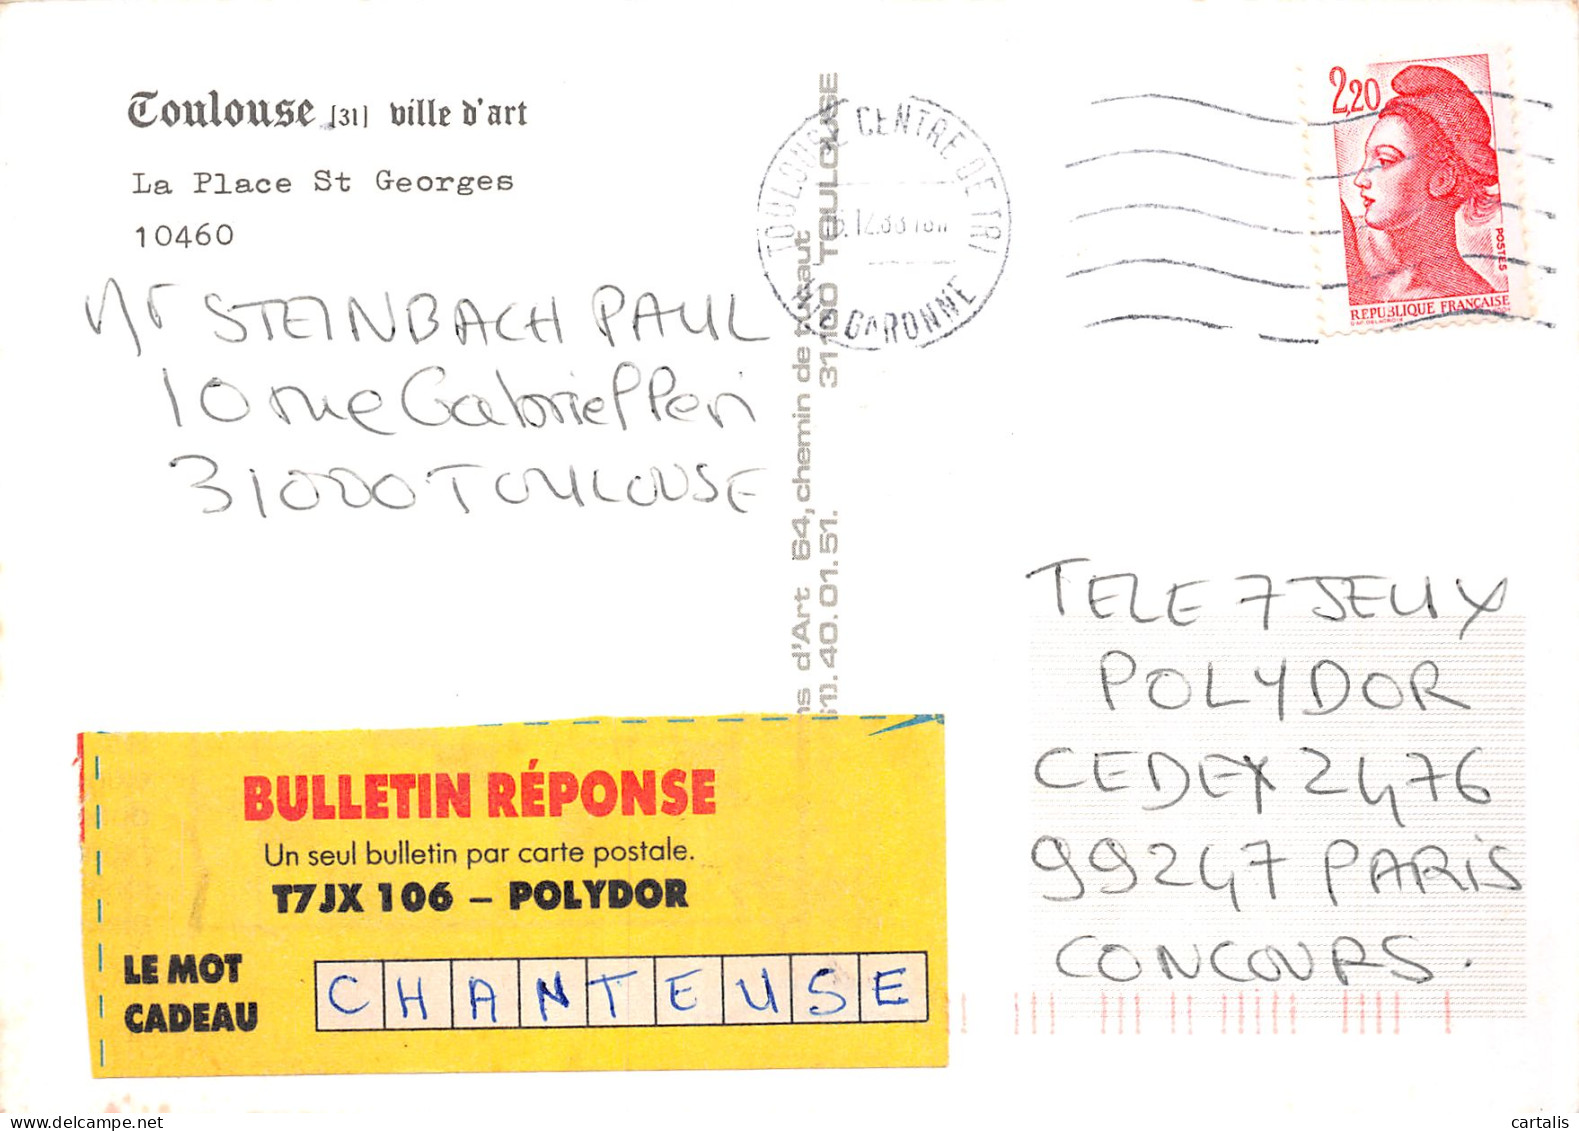 Toulouse [31] ville d'art
La Place St Georges
10460
Mr STEINBACH PAUL
10 rue Gabriel Peri
31000 TOULOUSE
d'Art 64, chemin de
31100 TOULOUSE
40.01.51.
TOULOUSE CENTRE DE TRI
GARONNE
2,20
POSTES
REPUBLIQUE FRANÇAISE
TELE 7 JEUX
POLYDOR
CEDEX 2476
99247 PARIS
CONCOURS.
BULLETIN RÉPONSE
Un seul bulletin par carte postale.
T7JX 106 – POLYDOR
LE MOT
CADEAU
CHANTEUSE
delcampe.net
cartalis